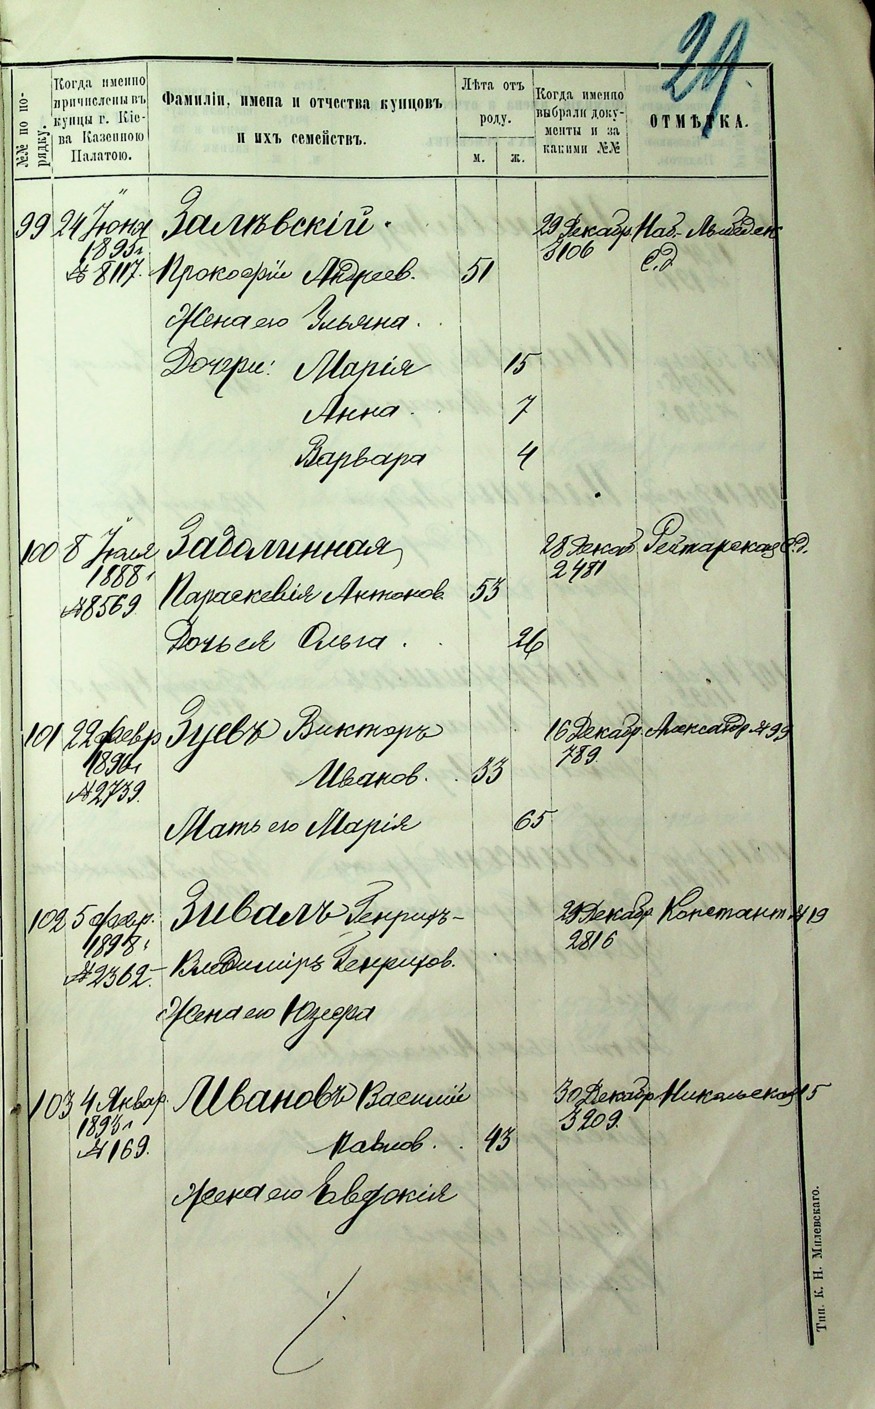 29.
№№ по по-
рядку.
Когда именно
причислены въ
купцы г. Кіе-
ва Казенною
Палатою.
Фамиліи, имена и отчества купцовъ
и ихъ семействъ.
Лѣта отъ
роду.
м.
ж.
Когда именно
выбрали доку-
менты и за
какими №№
ОТМѢТКА.
99 24 Іюня Залѣвскій. 29 Декабр Наб.-
1895 г. 3106 с.д
№ 8117. Прокофій Андреев. 51
Жена его Ульяна.
Дочери: Марія 15
Анна. 7
Варвара 4
100 8 Іюля Задолинная, 28 Декаб Рейтарская с.д.
1888 г. 2481
№ 8569. Параскевія Антонов. 53
Дочь ея Ольга. 26
101 22 февр Зуевъ Викторъ 16 Декабр Александр № 99
1896 г. 789.
№ 2739. Иванов. 33
Мать его Марія 65
102 5 фер. Зивалъ Генрихъ- 29 Декабр Константин № 19
1898 г. 2816
№ 2362. Владиміръ Генрихов.
Жена его Юзефа
103 4 Январ. Ивановъ Василій 30 Декабр Никольская 15
1893 г. 3209.
№ 169. Павлов. 43
Жена его Евдокія
Тип. К. Н. Милевскаго.